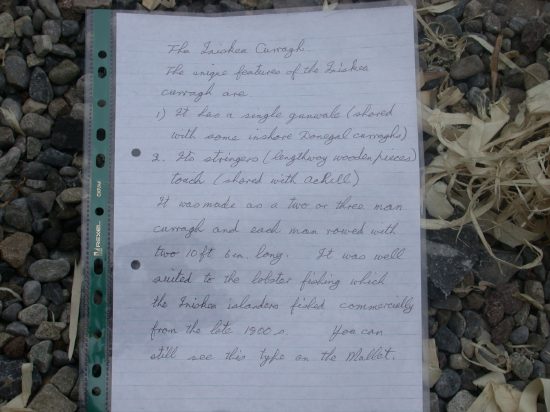 The Iniskea Curragh.
The unique features of the Iniskea
curragh are
1) It has a single gunwale (shared
with some inshore Donegal curraghs)
2. Its stringers (lengthway wooden pieces)
touch (shared with Achill)
It was made as a two or three man
curragh and each man rowed with
two 10ft 6in. long. It was well
suited to the lobster fishing which
the Iniskea islanders fished commercially
from the late 1800s. You can
still see this type on the Mullet.
REXEL